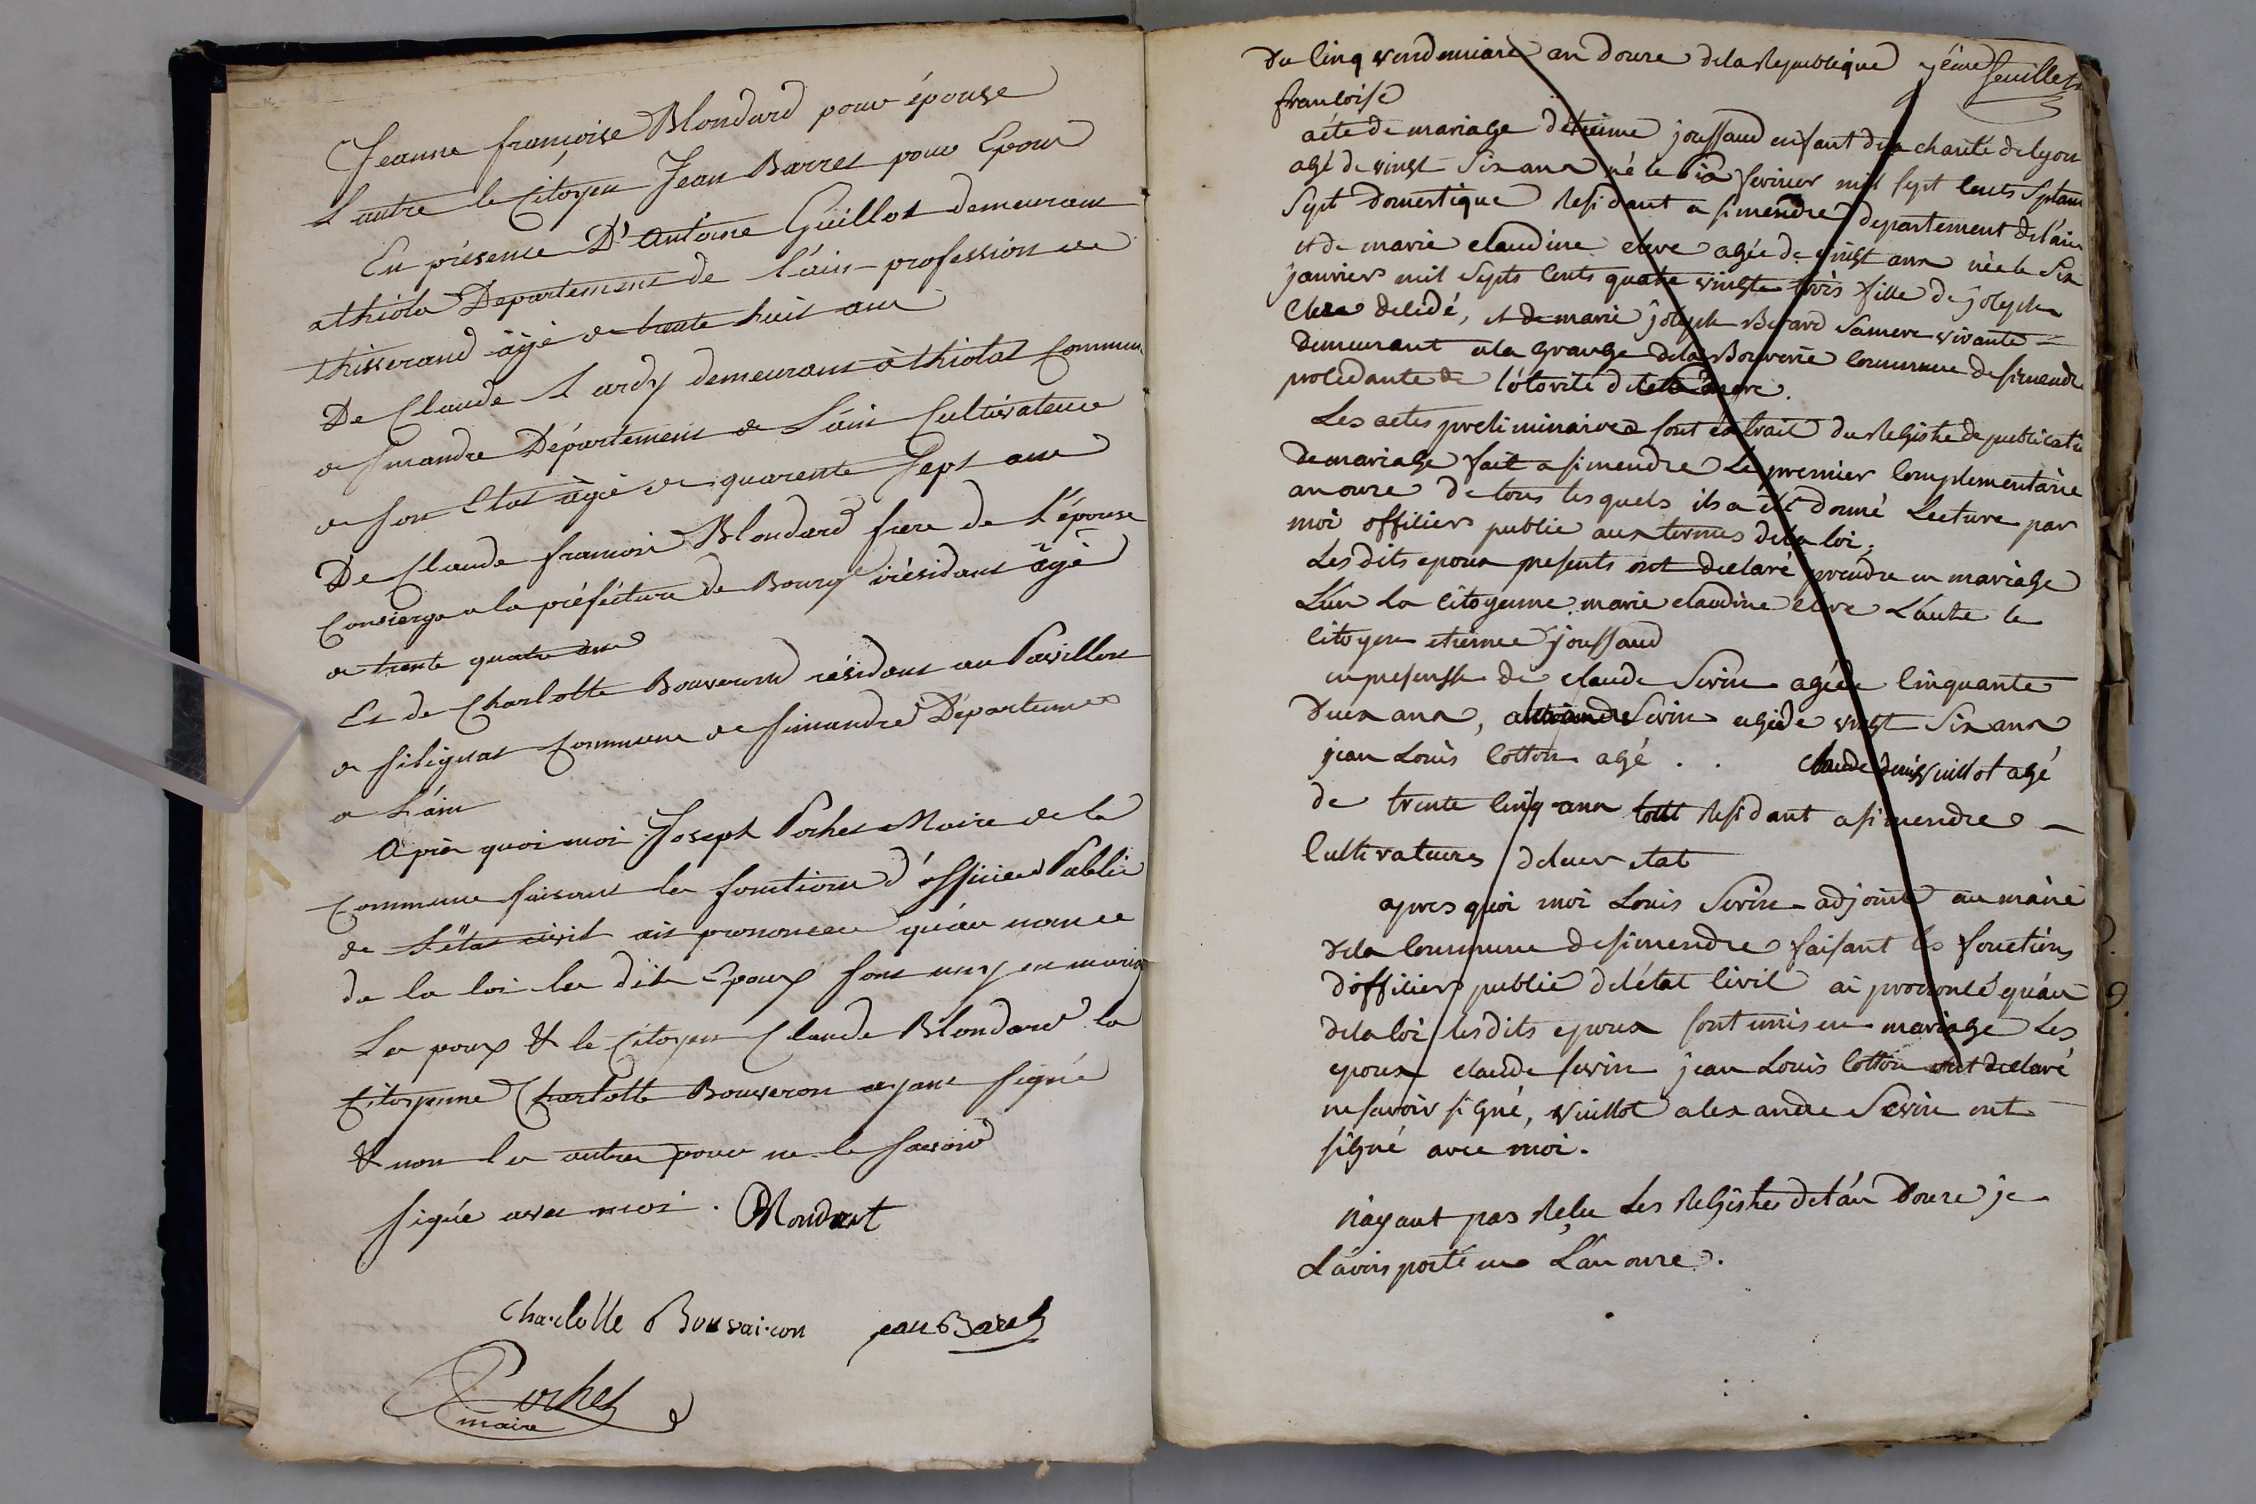 Jeanne françoise Blondard pour épouse
L'autre le Citoyen Jean Barret pour Epoux
En présence D'Antoine Guillot demeurant
a thiola Departement de l'ain profession de
thisserand âgé de trente huit ans
De Claude Lardy demeurant à thiolat Commune
de Simandre Département de L'ain Cultivateur
de son Etat âgé de quarente Sept ans
De Claude francoi Blondard frere de L'épouse
Concierge a la préfécture de Bourg résidant âgé
de trente quatre ans
Et de Charlotte Bouveron résidant au Pavillon
de Silignat Commune de Simandre Département
de L'ain
Après quoi moi Joseph Pochet Maire de la
Commune faisant les fonctions d'officier Public
de L'état civil ait prononcee qu'au nom de
de la loi les dits Epoux sont uny en mariage
Les poux & le Citoyen Claude Blondard la
Citoyenne Charlotte Bouveron ayant signé
& non les autres pour ne le savoir
signée avec moi. Blondart
Charlotte Bouvairon jean Baret
Pochet
maire
du cinq vendemiaire an douze dela Republique feuillet
francoise
acte de mariage d'etienne joussaud enfant dela charité de lyon
agé de vingt-six ans né le fevrier mil sept cents septante
sept domestique Residant a simendre departement del'ain
et de marie claudine cleve agée de vingt ans née le six
janvier mil septs cents quatre vingts trois fille de joseph
decidé, et de marie joseph Berard sa mere vivante
demeurant ala grange dela Bouverie commune de simendre
procedante de l'otorité de
Les actes preliminaires sont extrait du Registre de publicati
de mariage fait a simendre Le premier complementaire
an onze De tous lesquels ils a été donné Lecture par
moi officier public aux termes dela loi,
Les dits epoux presents ont declaré prendre en mariage
L'un La citoyenne marie claudine cleve L'autre le
citoyen etienne joussaud
en presensse de claude Sevin agé de cinquante
deux ans, Sevin agé de vingt six ans
jean Louis cotton agé . . claude denis vuillot agé
de trente cinq ans tous Residant a simendre
Cultivateurs de leur etat
apres quoi moi Louis Sevin adjoint au maire
dela commune de simendre faisant les fonctions
d'officier public de l'état civil ai prononcé qu'au
dela loi les dits epoux sont unis en mariage Les
epoux claude sevin jean Louis cotton ont declaré
ne savoir signé, vuillot alexandre Sevin ont
signé avec moi.
N'ayant pas Reçu Les Registres del'an Douze je
L'avois porté en L'an onze.